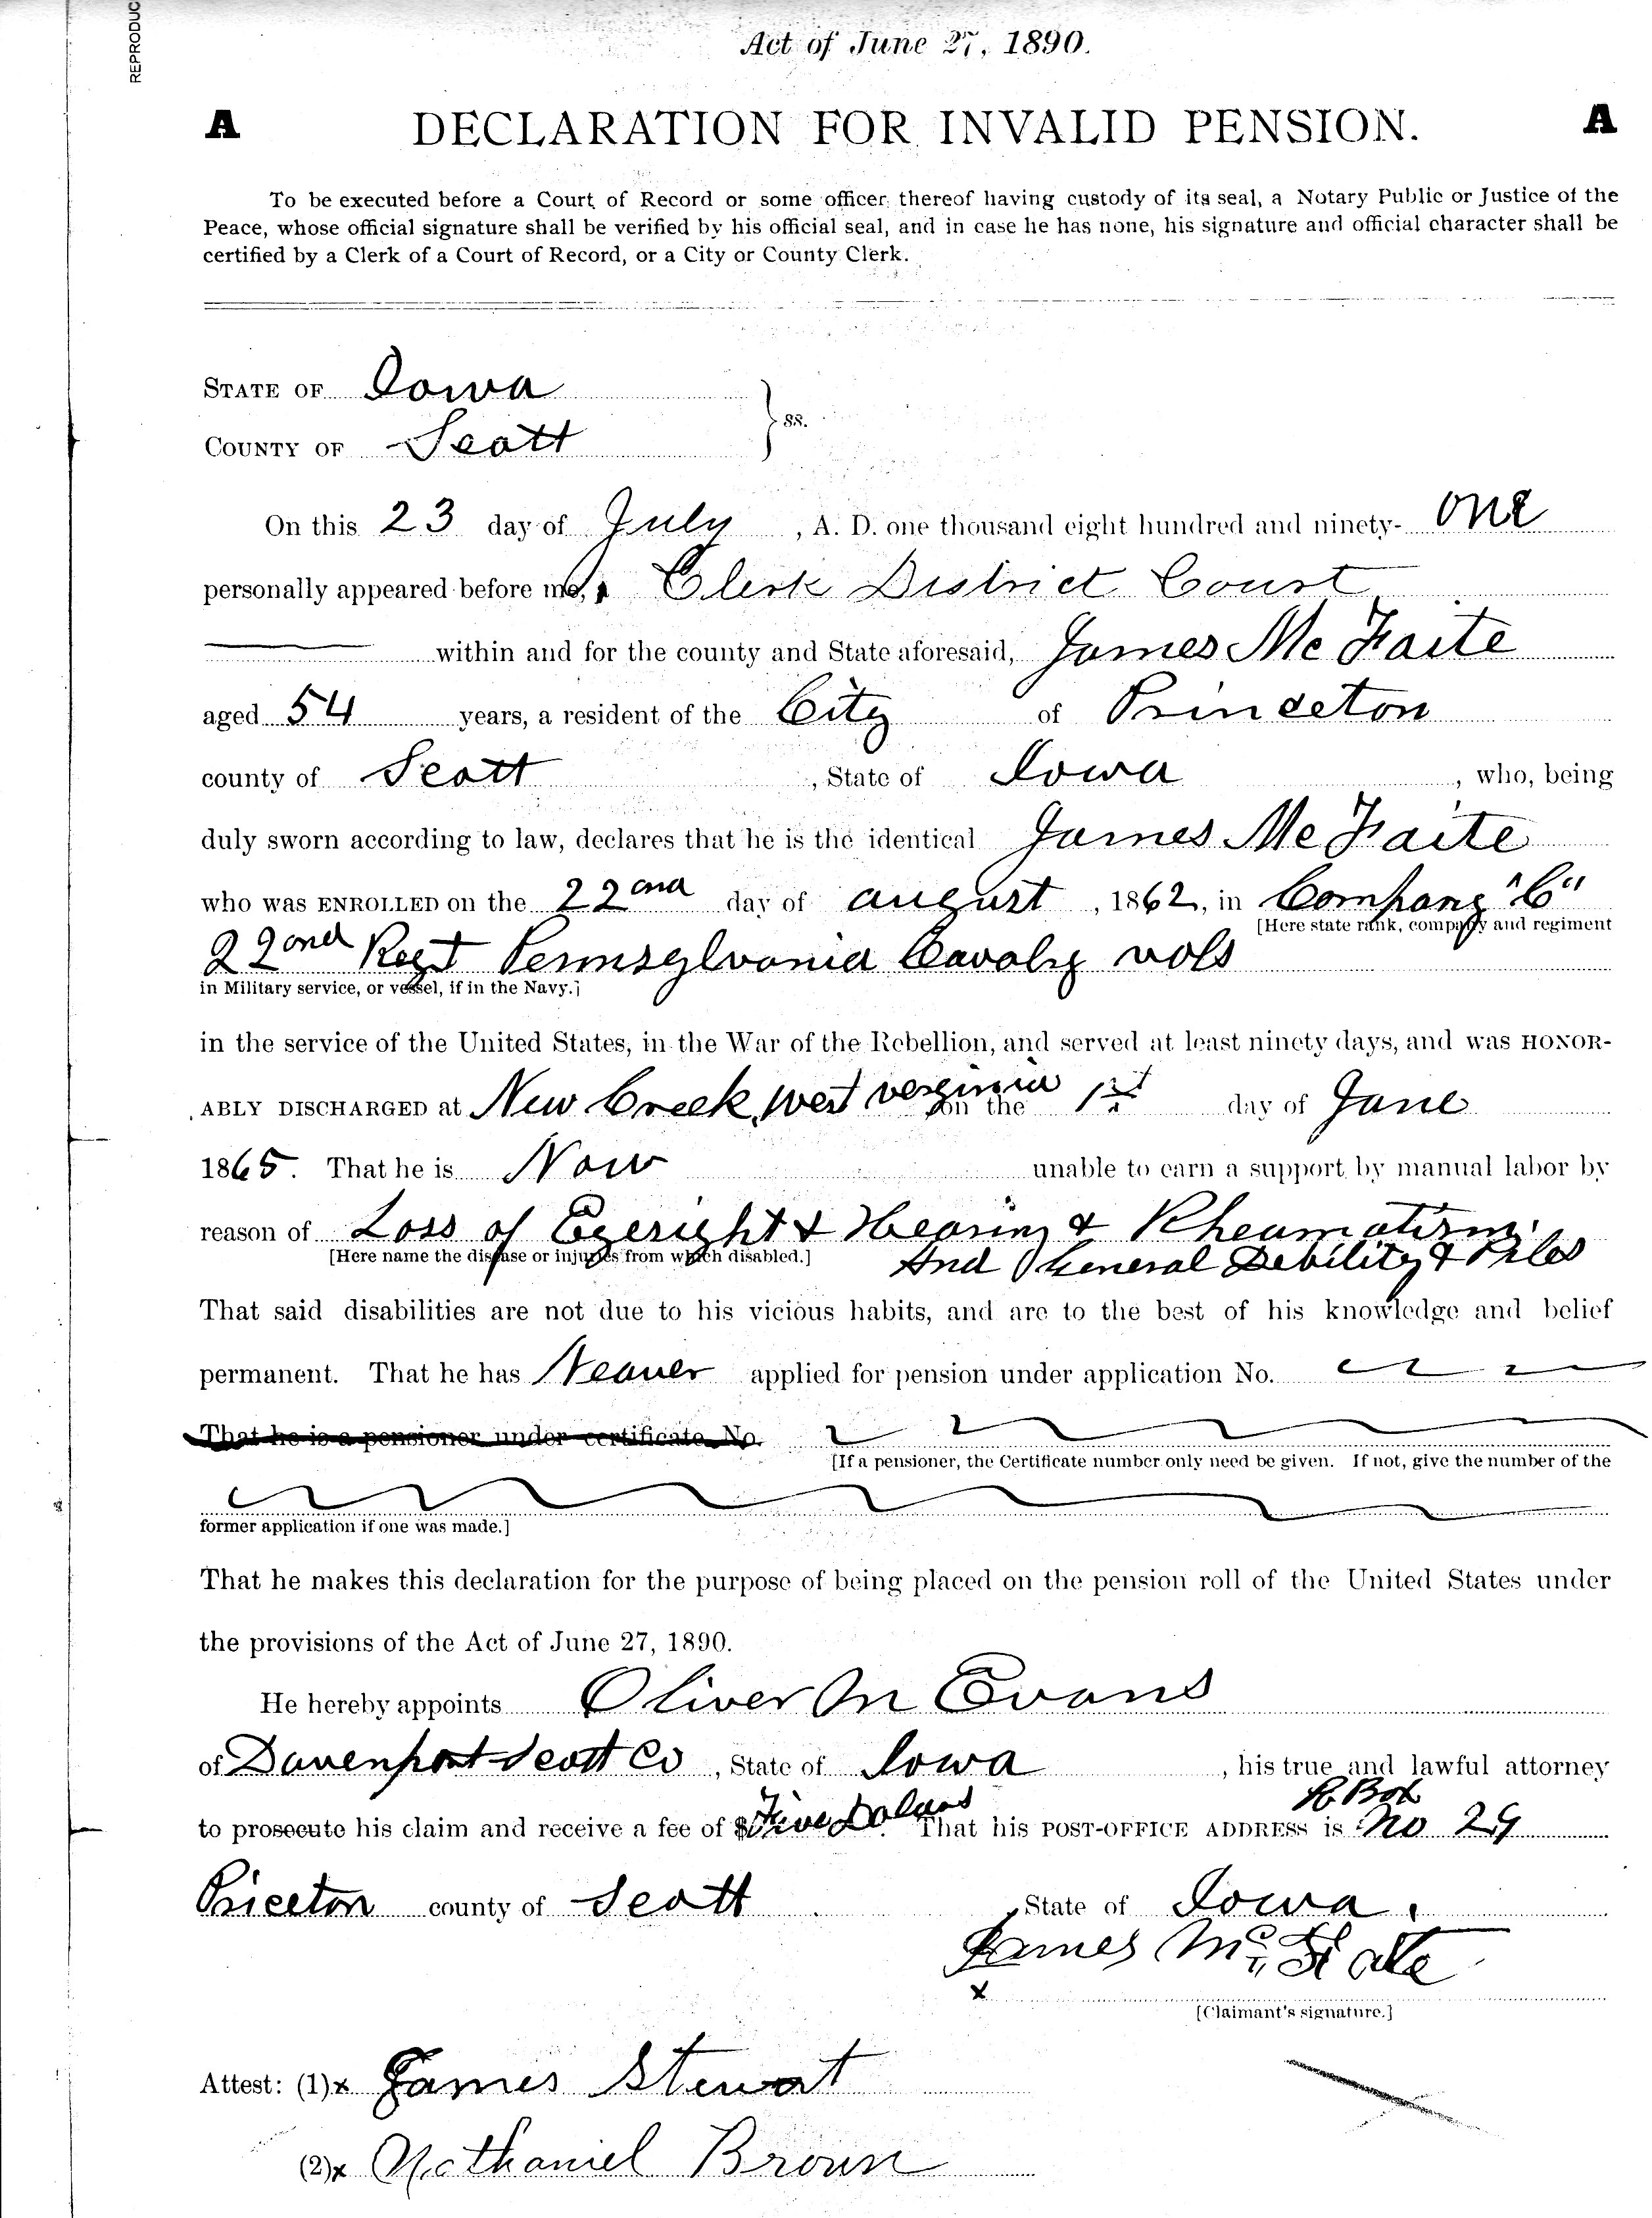 REPRODUC
Act of June 27, 1890.
A DECLARATION FOR INVALID PENSION. A
To be executed before a Court of Record or some officer thereof having custody of its seal, a Notary Public or Justice of the
Peace, whose official signature shall be verified by his official seal, and in case he has none, his signature and official character shall be
certified by a Clerk of a Court of Record, or a City or County Clerk.
STATE OF Iowa
ss.
COUNTY OF Scott
On this 23 day of July, A. D. one thousand eight hundred and ninety- one
personally appeared before me, Clerk District Court
within and for the county and State aforesaid, James Mc Faite
aged 54 years, a resident of the City of Princeton
county of Scott, State of Iowa, who, being
duly sworn according to law, declares that he is the identical James Mc Faite
who was ENROLLED on the 22ond day of august, 1862, in Company "C"
[Here state rank, company and regiment
22ond Regt Pennsylvania Cavalry vols
in Military service, or vessel, if in the Navy.]
in the service of the United States, in the War of the Rebellion, and served at least ninety days, and was HONOR-
ABLY DISCHARGED at New Creek, West verginia on the 1st day of June
1865. That he is Now unable to earn a support by manual labor by
reason of Loss of Eyesight & Hearing & Rheumatism
[Here name the disease or injuries from which disabled.] And General Debility & Piles
That said disabilities are not due to his vicious habits, and are to the best of his knowledge and belief
permanent. That he has Neaver applied for pension under application No.
That he is a pensioner under certificate No.
[If a pensioner, the Certificate number only need be given. If not, give the number of the
former application if one was made.]
That he makes this declaration for the purpose of being placed on the pension roll of the United States under
the provisions of the Act of June 27, 1890.
He hereby appoints Oliver M Evans
of Davenport Scott Co, State of Iowa, his true and lawful attorney
to prosecute his claim and receive a fee of $Five Dolars. That his POST-OFFICE ADDRESS is Box No 29
Priceton county of Scott State of Iowa.
James Mc Fate
x
[Claimant's signature.]
Attest: (1)x James Stewart
(2)x Nathaniel Brown